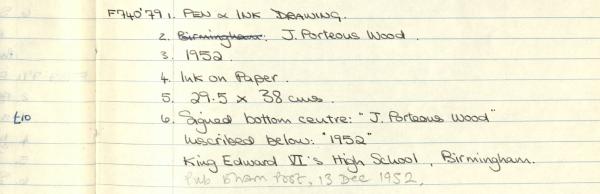 F740'79 1. PEN & INK DRAWING.
2. Birmingham. J. Porteous Wood.
3. 1952.
4. Ink on Paper.
5. 29.5 x 38 cms.
£10 6. Signed bottom centre: "J. Porteous Wood"
Inscribed below: "1952"
King Edward VI's High School, Birmingham.
Pub B'ham Post, 13 Dec 1952,